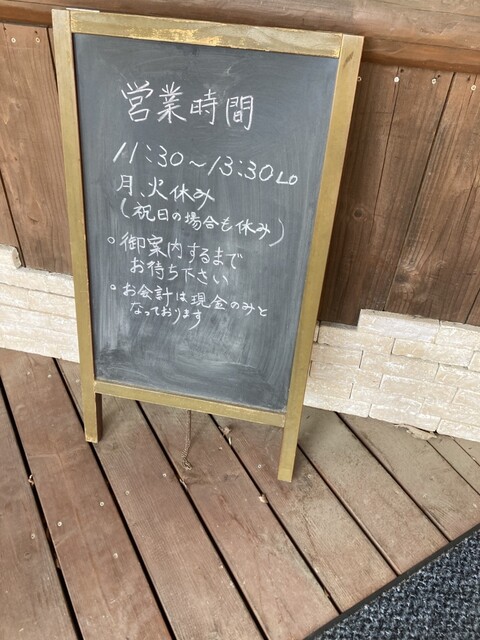 営業時間
11:30～13:30LO
月、火休み
(祝日の場合も休み)
○御案内するまで
お待ち下さい
○お会計は現金のみと
なっております